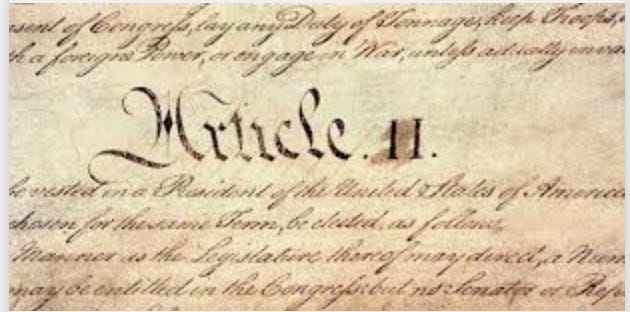 sent of Congress, lay any Duty of Tonnage, keep Troops,
h a foreign Power, or engage in War, unless actually inva
Article. II.
be vested in a President of the United States of America
chosen for the same Term, be elected, as follows
Manner as the Legislature thereof may direct, a Num
may be entitled in the Congress: but no Senator or Rep